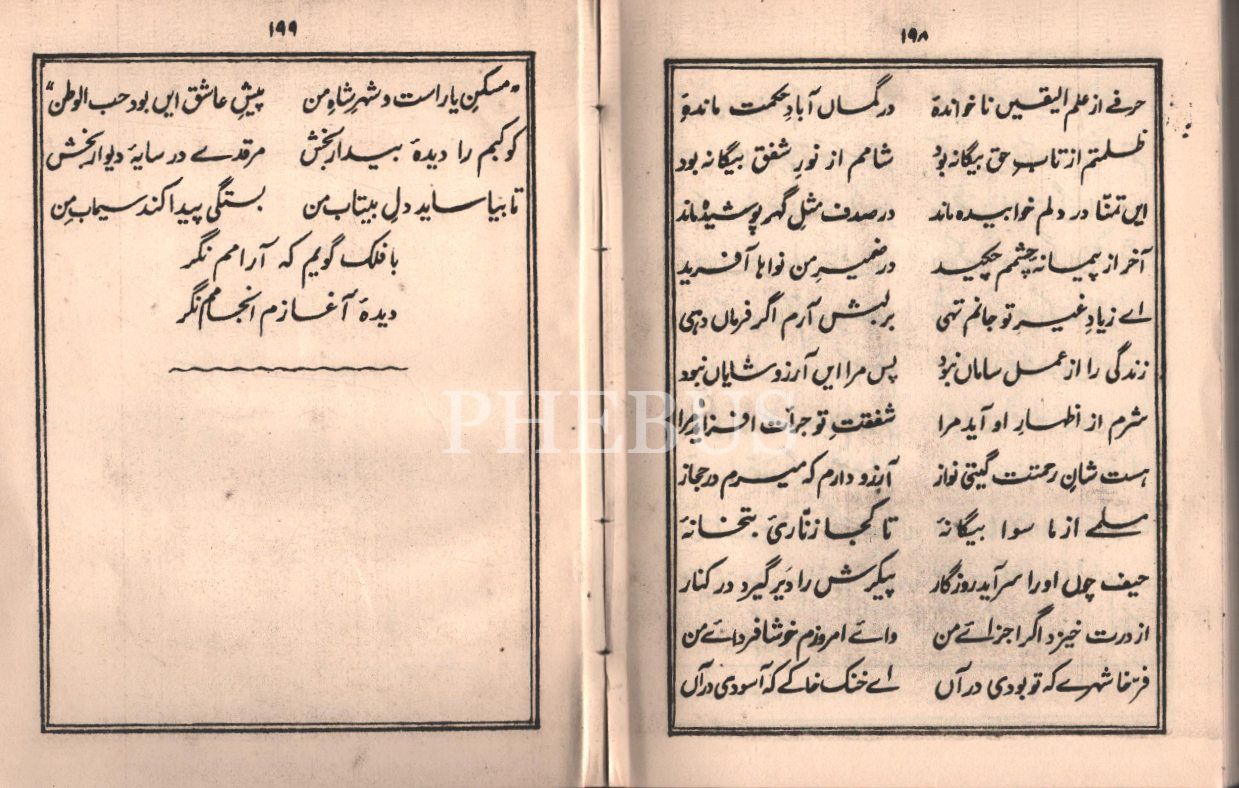 ۱۹۸
حرفے از علم الیقیں نا خواندۂ در گماں آبادِ حکمت ماندۂ
ظلمتم از تابِ حق بیگانہ بود شامم از نورِ شفق بیگانہ بود
ایں تمنّا در دلم خوابیدہ ماند در صدف مثلِ گہر پوشیدہ ماند
آخر از پیمانۂ چشمم چکید در ضمیرِ من نواہا آفرید
اے زیادِ غیرِ تو جانم تہی بر لبش آرم اگر فرماں دہی
زندگی را از عمل ساماں نبود پس مرا ایں آرزو شایاں نبود
شرم از اظہارِ او آید مرا شفقتِ تو جرأت افزاید مرا
ہست شانِ رحمتت گیتی نواز آرزو دارم کہ میرم در حجاز
مسلمے از ما سوا بیگانۂ تا کجا زنّاریٔ بتخانۂ
حیف چوں او را سر آید روزگار پیکرش را دَیر گیرد در کنار
از درت خیزد اگر اجزائے من وائے امروزم خوشا فردائے من
فرّخا شہرے کہ تو بودی در آں اے خنک خاکے کہ آسودی در آں
۱۹۹
"مسکنِ یار است و شہرِ شاہِ من پیشِ عاشق ایں بود حب الوطن"
کوکبم را دیدۂ بیدار بخش مرقدے در سایۂ دیوار بخش
تا بیاساید دلِ بیتابِ من بستگی پیدا کند سیمابِ من
با فلک گویم کہ آرامم نگر
دیدۂ آغازم انجامم نگر
PHEBUS